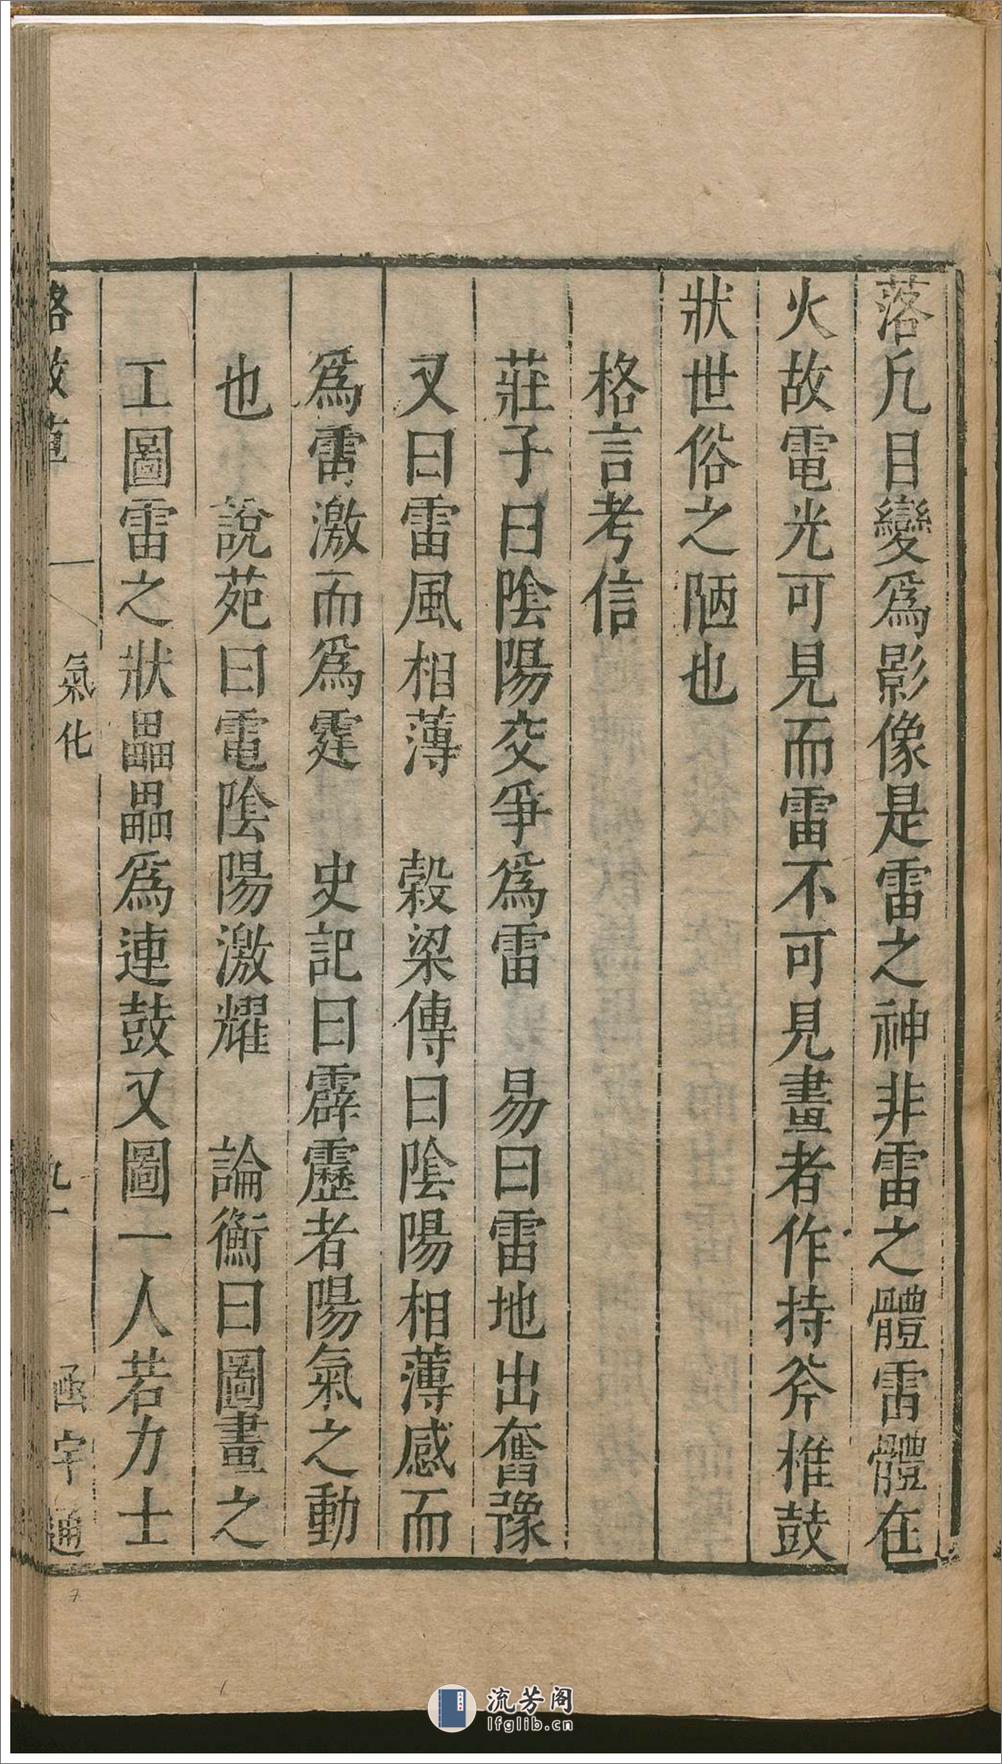 落凡目變爲影像是雷之神非雷之體雷體在
火故電光可見而雷不可見畫者作持斧椎鼓
狀世俗之陋也
格言考信
莊子曰陰陽交爭爲雷 易曰雷地出奮豫
又曰雷風相薄 穀梁傳曰陰陽相薄感而
爲雷激而爲霆 史記曰霹靂者陽氣之動
也 說苑曰電陰陽激耀 論衡曰圖畫之
工圖雷之狀畾畾爲連鼓又圖一人若力士
格致草 一 氣化 九十 函宇通
流芳阁
lfglib.cn